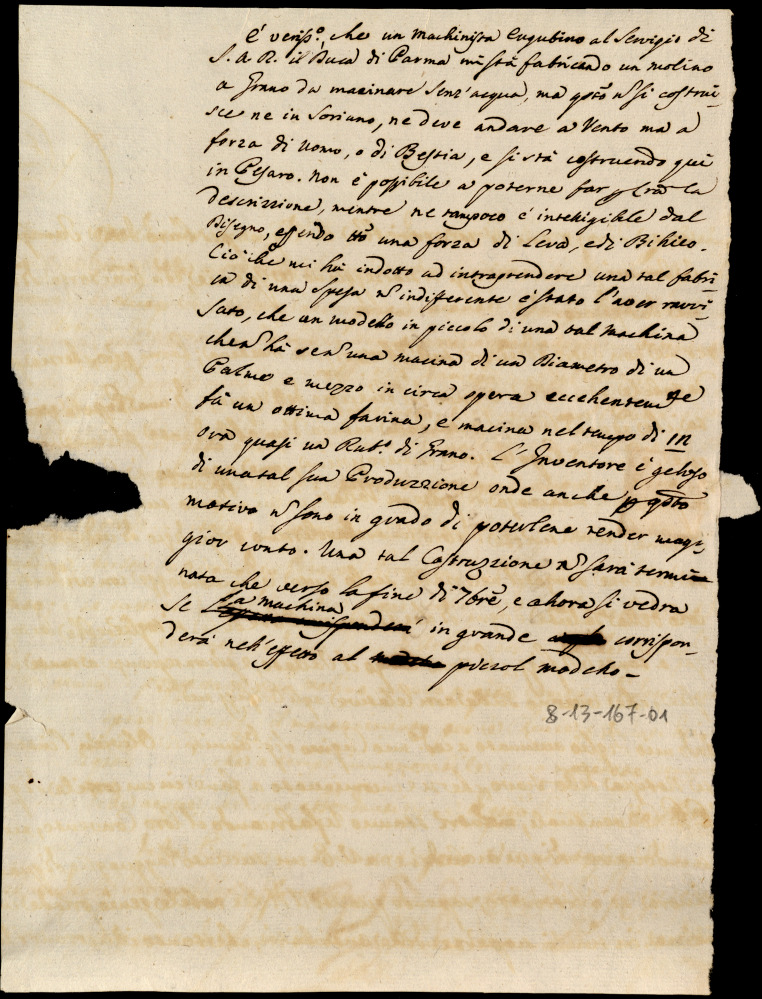 È veriss.º, che un Machinista Eugubino al Servigio di
S. A. R. il Duca di Parma mi stà fabricando un molino
a Grano da macinare senz'acqua, ma qsto ñ si costrui-
sce ne in Soriano, ne deve andare a Vento ma a
forza di Uomo, o di Bestia, e si stà costruendo quì
in Pesaro. Non è possibile a poterne far la
descrizzione, mentre ne tampoco è intelligibile dal
Disegno, essendo tto una forza di Leva, e di Bilico.
Ciò che mi hà indotto ad intraprendere una tal fabri-
ca di una spesa ñ indifferente è stato l'aver ravvi-
sato, che un modello in piccolo di una tal Machina
che hà una macina di un Diametro di un
Palmo e mezzo in circa opera eccellentemte
fà un ottima farina, e macina nel tempo di un
ora quasi un Rub.º di Grano. L'Inventore è geloso
di una tal sua Produzzione onde anche p qsto
motivo ñ sono in grado di poterlene render mag-
gior conto. Una tal Costruzzione ñ sarà termi-
nata che verso la fine di 7bre, e allora si vedrà
la machina
se in grande corrispon-
derà nell'effetto al piccol modello -
8-13-167-01